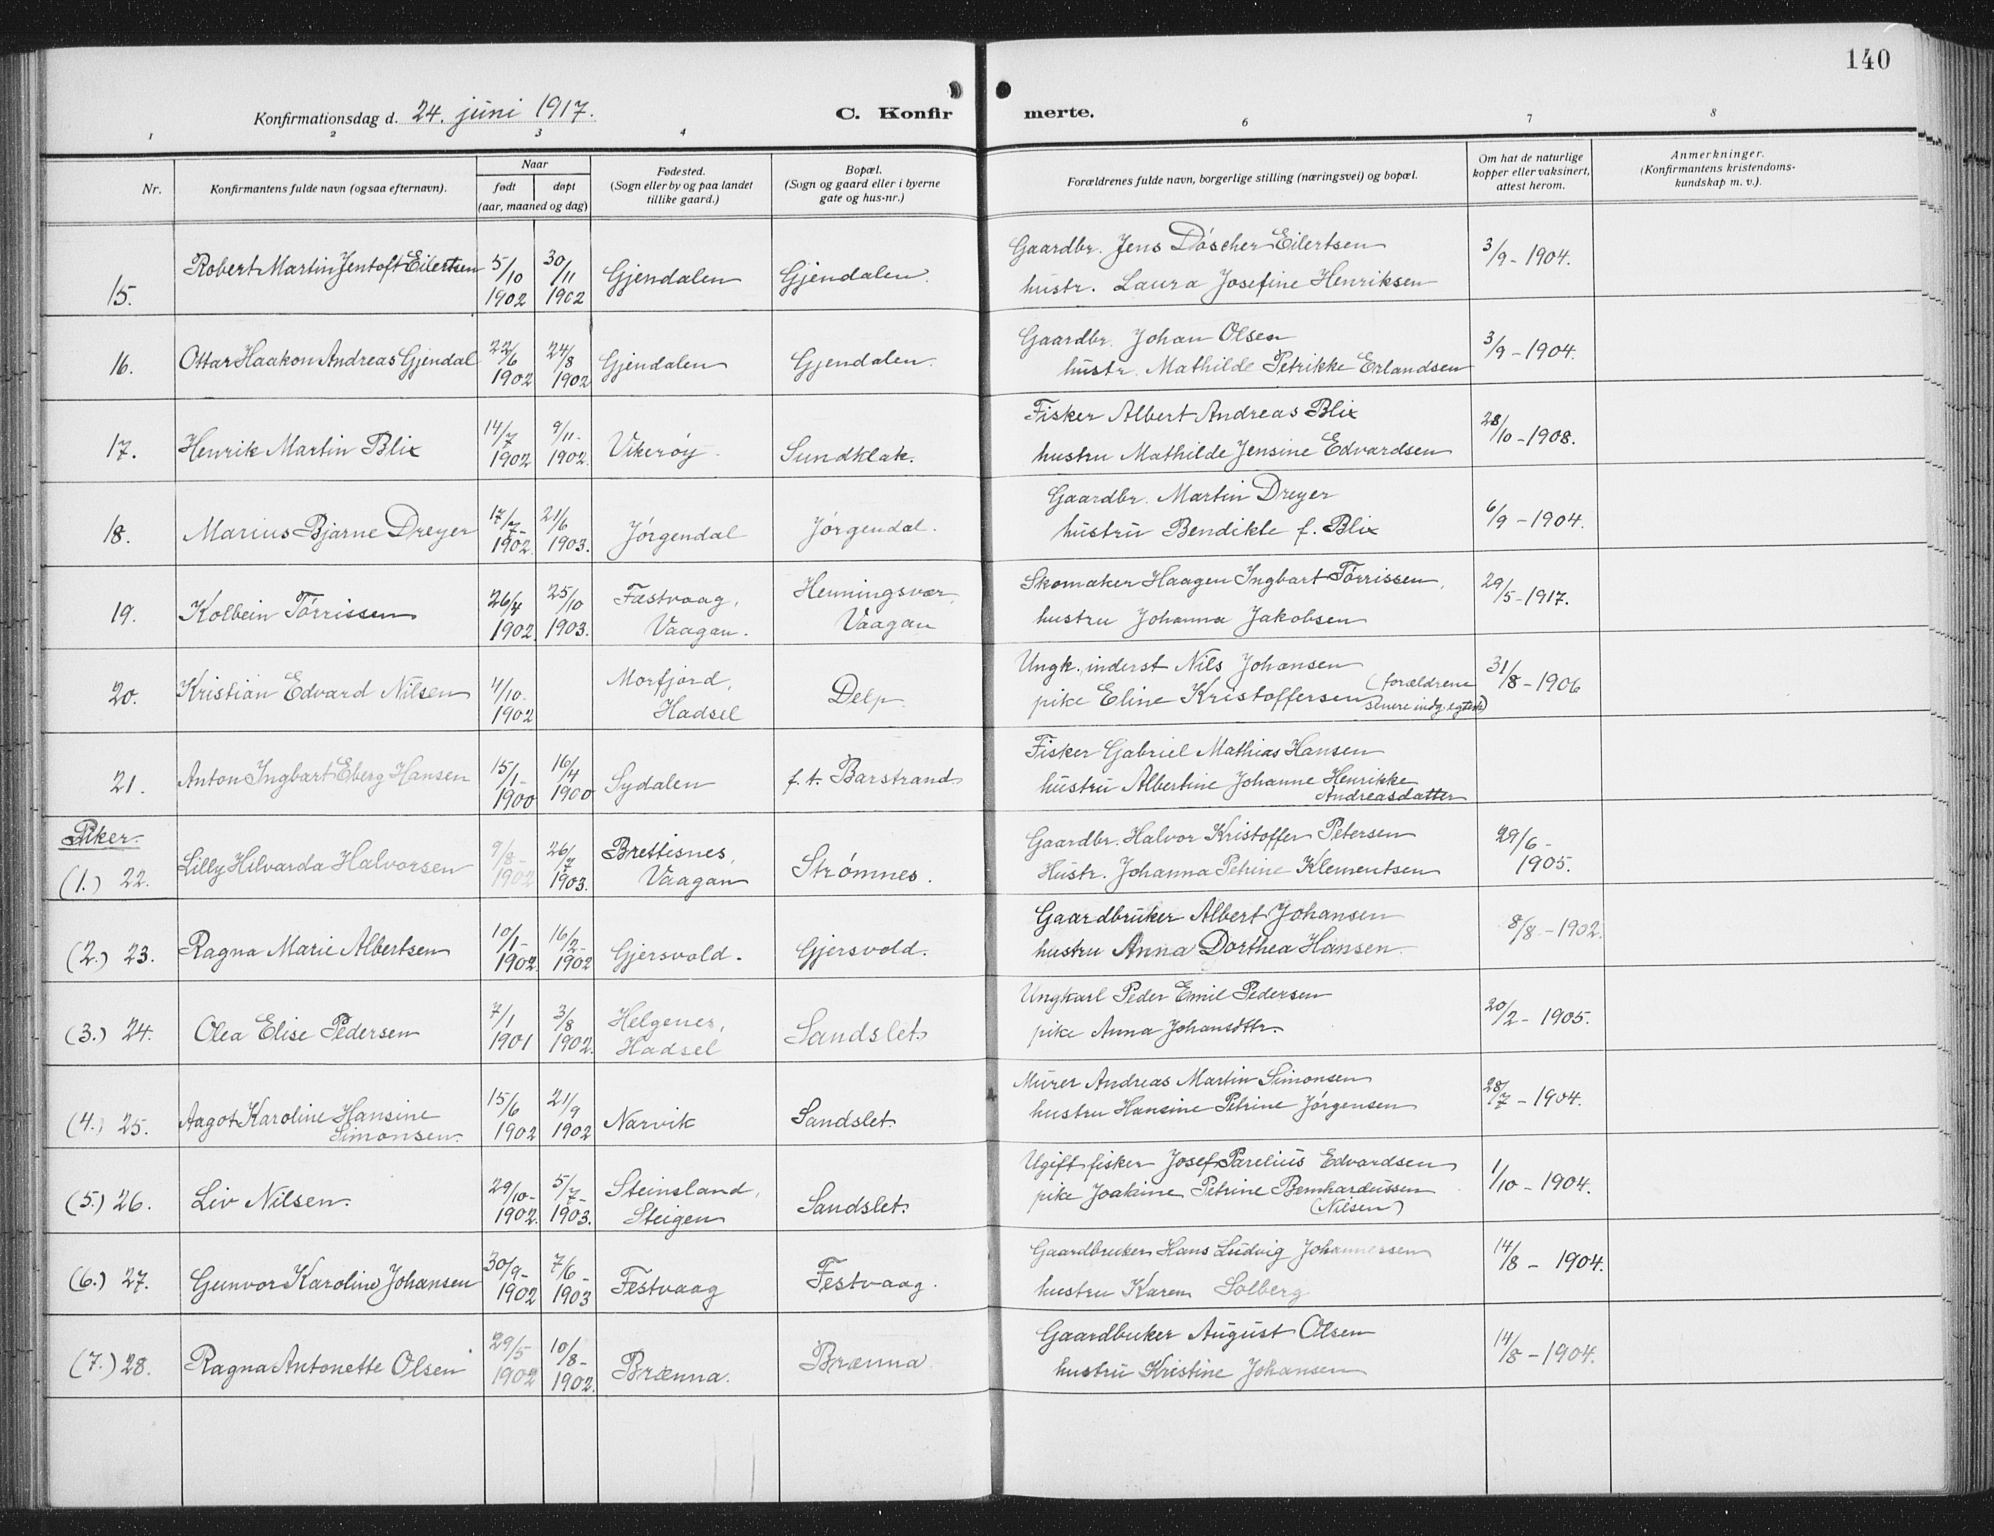 140
Konfirmationsdag d. 24. juni 1917.
C. Konfir merte.
1 2 3 4 6 7 8
Nr.
Konfirmantens fulde navn (ogsaa efternavn).
Naar
født døpt
(aar, maaned og dag)
Fødested.
(Sogn eller by og paa landet
tillike gaard.)
Bopæl.
(Sogn og gaard eller i byerne
gate og hus-nr.)
Forældrenes fulde navn, borgerlige stilling (næringsvei) og bopæl.
Om hat de naturlige
kopper eller vaksinert,
attest herom.
Anmerkninger.
(Konfirmantens kristendoms-
kundskap m. v.).
15. Robert Martin Jentoft Eilertsen 5/10 1902 30/11 1902 Gjendalen Gjendalen.
Gaardbr. Jens Döscher Eilertsen
hustr. Laura Josefine Henriksen
3/9 - 1904.
16. Ottar Haakon Andreas Gjendal 22/6 1902 24/8 1902 Gjendalen Gjendalen.
Gaardbr. Johan Olsen
hustr. Mathilde Petrikke Erlandsen
3/9 - 1904.
17. Henrik Martin Blix 14/7 1902 9/11- 1902. Vikerøy. Sundklak.
Fisker Albert Andreas Blix
hustru Mathilde Jensine Edvardsen
28/10 - 1908.
18. Marius Bjarne Dreyer 17/7- 1902. 21/6 1903. Jørgendal Jørgendal.
Gaardbr. Martin Dreyer
hustru Bendikte f. Blix
6/9 - 1904.
19. Kolbein Tørrissen 26/4 1902. 25/10 1903. Fæstvaag, Vaagan. Henningsvær, Vaagan
Skomaker Haagen Ingbart Tørrissen,
hustru Johanna Jakobsen
29/5 - 1917.
20. Kristian Edvard Nilsen 4/10. 1902 Morfjord, Hadsel Delp.
Ungk., inderst Nils Johansen
pike Eline Kristoffersen (forældrene
senere indg. egtesk)
31/8 - 1906
21. Anton Ingbart Eberg Hansen 15/1- 1900 16/4 1900 Sydalen f. t. Barstrand.
Fisker Gabriel Mathias Hansen
hustru Albertine Johanne Henrikke
Andreasdatter
Piker.
(1.) 22. Lilly Hilvarda Halvorsen 9/8- 1902 26/7 1903. Brettisnes, Vaagan Strømnes.
Gaardbr. Halvor Kristoffer Petersen
Hustr. Johanna Petrine Klementsen
29/6 - 1905.
(2.) 23. Ragna Marie Albertsen 10/1- 1902. 16/2- 1902 Gjersvold. Gjersvold.
Gaardbruker Albert Johansen
hustru Anna Dorthea Hansen.
8/8 - 1902.
(3.) 24. Olea Elise Pedersen 7/1 1901 3/8 1902. Helgenes, Hadsel Sandslet.
Ungkarl Peder Emil Pedersen
pike Anna Johansdttr.
20/2 - 1905.
(4.) 25. Aagot Karoline Hansine Simonsen. 15/6 1902 21/9 1902 Narvik Sandslet.
Murer Andreas Martin Simonsen
hustru Hansine Petrine Jørgensen
28/7 - 1904.
(5.) 26. Liv Nilsen. 29/10- 1902. 5/7- 1903. Steinsland, Steigen Sandslet.
Ugift fisker Josef Parelius Edvardsen
pike Joakine Petrine Bernhardussen
(Nilsen)
1/10 - 1904.
(6.) 27. Gunvor Karoline Johansen 30/9- 1902 7/6- 1903 Festvaag Festvaag.
Gaardbruker Hans Ludvig Johannessen
hustru Karen Solberg
14/8 - 1904.
(7.) 28. Ragna Antonette Olsen 29/5 1902 10/8- 1902. Brænna. Brænna.
Gaardbuker August Olsen
hustru Kristine Johansen
14/8 - 1904.